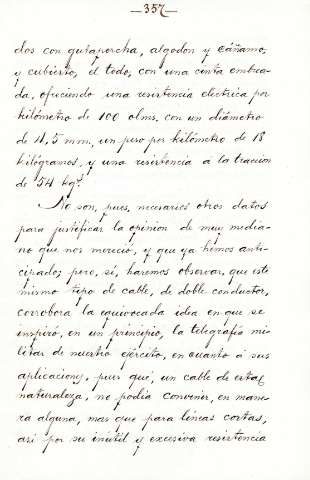 —357—
dos con gutapercha, algodon y cáñamo,
y cubierto, el todo, con una cinta embrea-
da, ofreciendo una resistencia electrica por
kilómetro de 100 olms. con un diámetro
de 4,5 mm., un peso por kilómetro de 18
kilógramos, y una resistencia á la traccion
de 54 kgs.
No son, pues, necesarios otros datos
para justificar la opinion de muy media-
no que nos mereció, y que ya hemos anti-
cipado; pero, sí, haremos observar, que este
mismo tipo de cable, de doble conductor,
corrobora la equivocada idea en que se
inspiró, en un principio, la telegrafía mi-
litar de nuestro ejército, en cuanto á sus
aplicaciones, pues que, un cable de esta
naturaleza, no podía convenir, en mane-
ra alguna, mas que para lineas cortas,
así por su inútil y excesiva resistencia